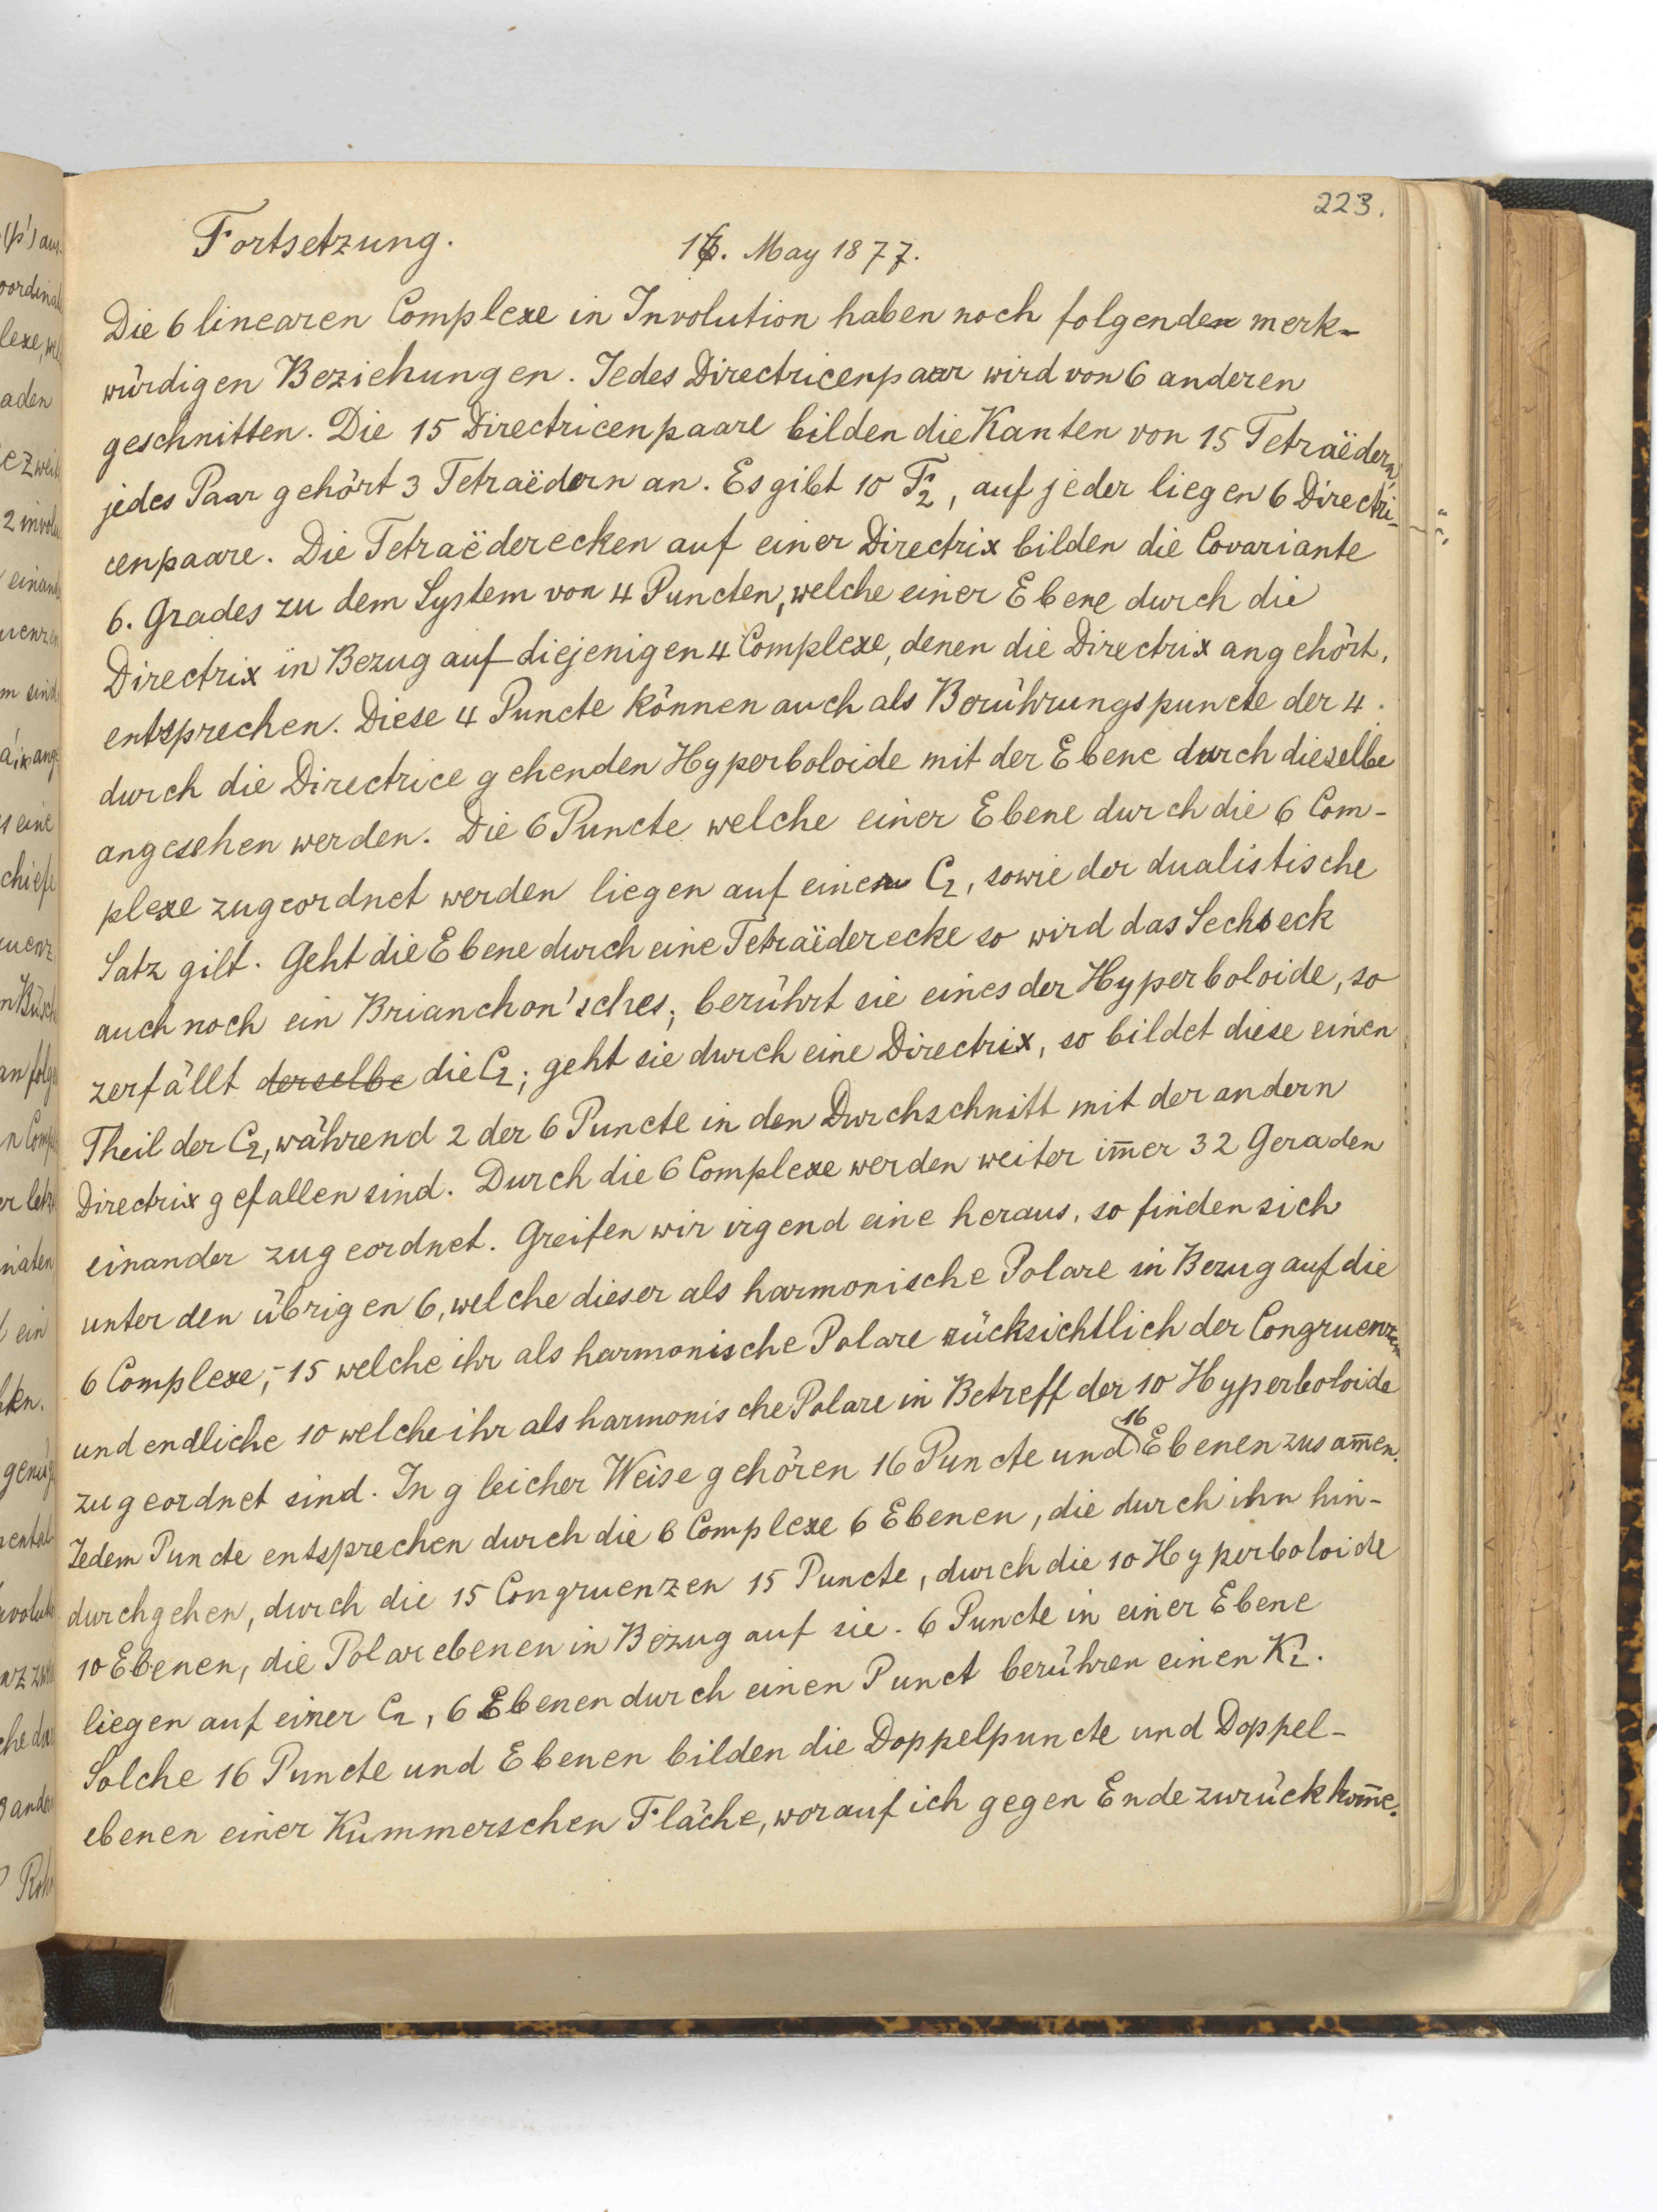 223.
Fortsetzung.
16. May 1877.
Die 6 linearen Complexe in Involution haben noch folgenden merk-
würdigen Beziehungen. Jedes Directricenpaar wird von 6 anderen
geschnitten. Die 15 Directricenpaare bilden die Kanten von 15 Tetraëdern,
jedes Paar gehört 3 Tetraëdern an. Es gibt 10 F₂, auf jeder liegen 6 Directri-
cenpaare. Die Tetraëderecken auf einer Directrix bilden die Covariante
6. Grades zu dem System von 4 Puncten, welche einer Ebene durch die
Directrix in Bezug auf diejenigen 4 Complexe, denen die Directrix angehört,
entsprechen. Diese 4 Puncte können auch als Berührungspuncte der 4
durch die Directrice gehenden Hyperboloide mit der Ebene durch dieselbe
angesehen werden. Die 6 Puncte welche einer Ebene durch die 6 Com-
plexe zugeordnet werden liegen auf einer C₂, sowie der dualistische
Satz gilt. Geht die Ebene durch eine Tetraëderecke so wird das Sechseck
auch noch ein Brianchon'sches; berührt sie eines der Hyperboloide, so
zerfällt derselbe die C₂; geht sie durch eine Directrix, so bildet diese einen
Theil der C₂, während 2 der 6 Puncte in den Durchschnitt mit der andern
Directrix gefallen sind. Durch die 6 Complexe werden weiter im̅er 32 Geraden
einander zugeordnet. Greifen wir irgend eine heraus, so finden sich
unter den übrigen 6, welche dieser als harmonische Polare in Bezug auf die
6 Complexe; - 15 welche ihr als harmonische Polare rücksichtlich der Congruenzen
und endliche 10 welche ihr als harmonische Polare in Betreff der 10 Hyperboloide
zugeordnet sind. In gleicher Weise gehören 16 Puncte und 16 Ebenen zusam̅en.
Jedem Puncte entsprechen durch die 6 Complexe 6 Ebenen, die durch ihn hin-
durchgehen, durch die 15 Congruenzen 15 Puncte, durch die 10 Hyperboloide
10 Ebenen, die Polarebenen in Bezug auf sie. 6 Puncte in einer Ebene
liegen auf einer C₂, 6 Ebenen durch einen Punct berühren einen K₂.
Solche 16 Puncte und Ebenen bilden die Doppelpuncte und Doppel-
ebenen einer Kummerschen Fläche, worauf ich gegen Ende zurückkom̅e.